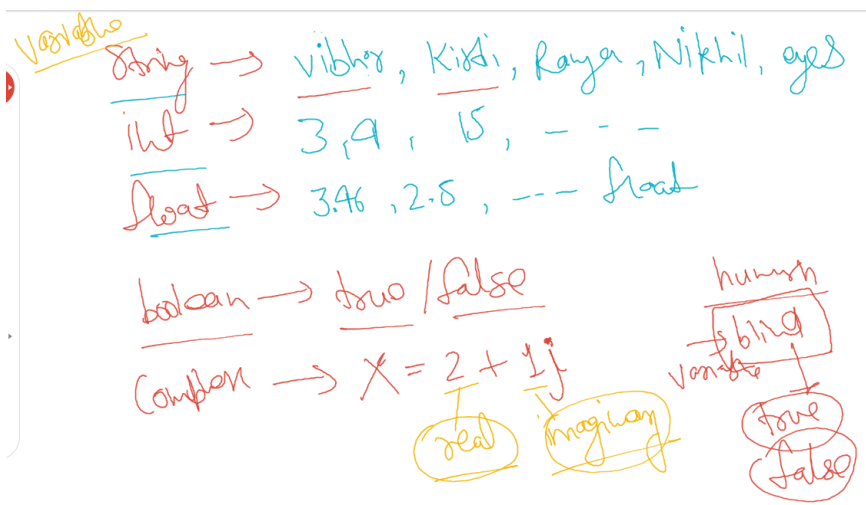 Variable
String → vibhor, Kirti, Ranya, Nikhil, eyes
int → 3, 9, 15, - - -
float → 3.46, 2.5, --- float
boolean → true / false
Complex → X = 2 + 1j
real imaginary
human
→ blind
Variable
true
false